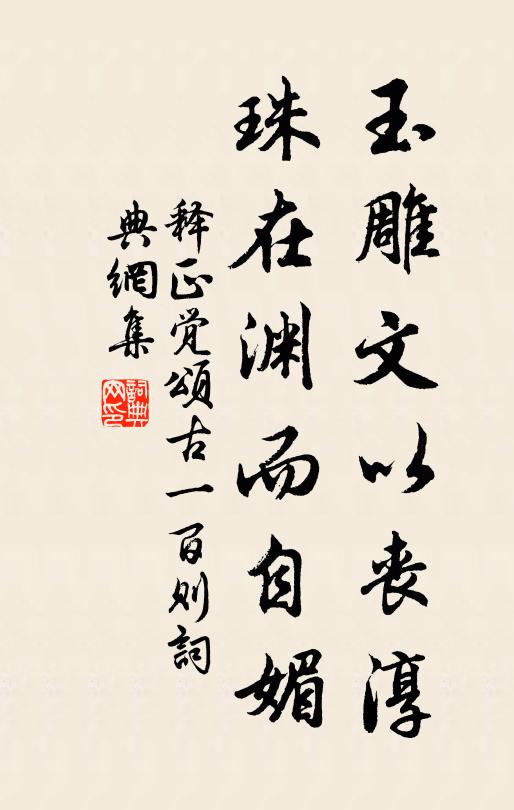 玉雕文以丧淳
珠在渊而自媚
释正觉颂古一百则詞
典網集
詞典网印